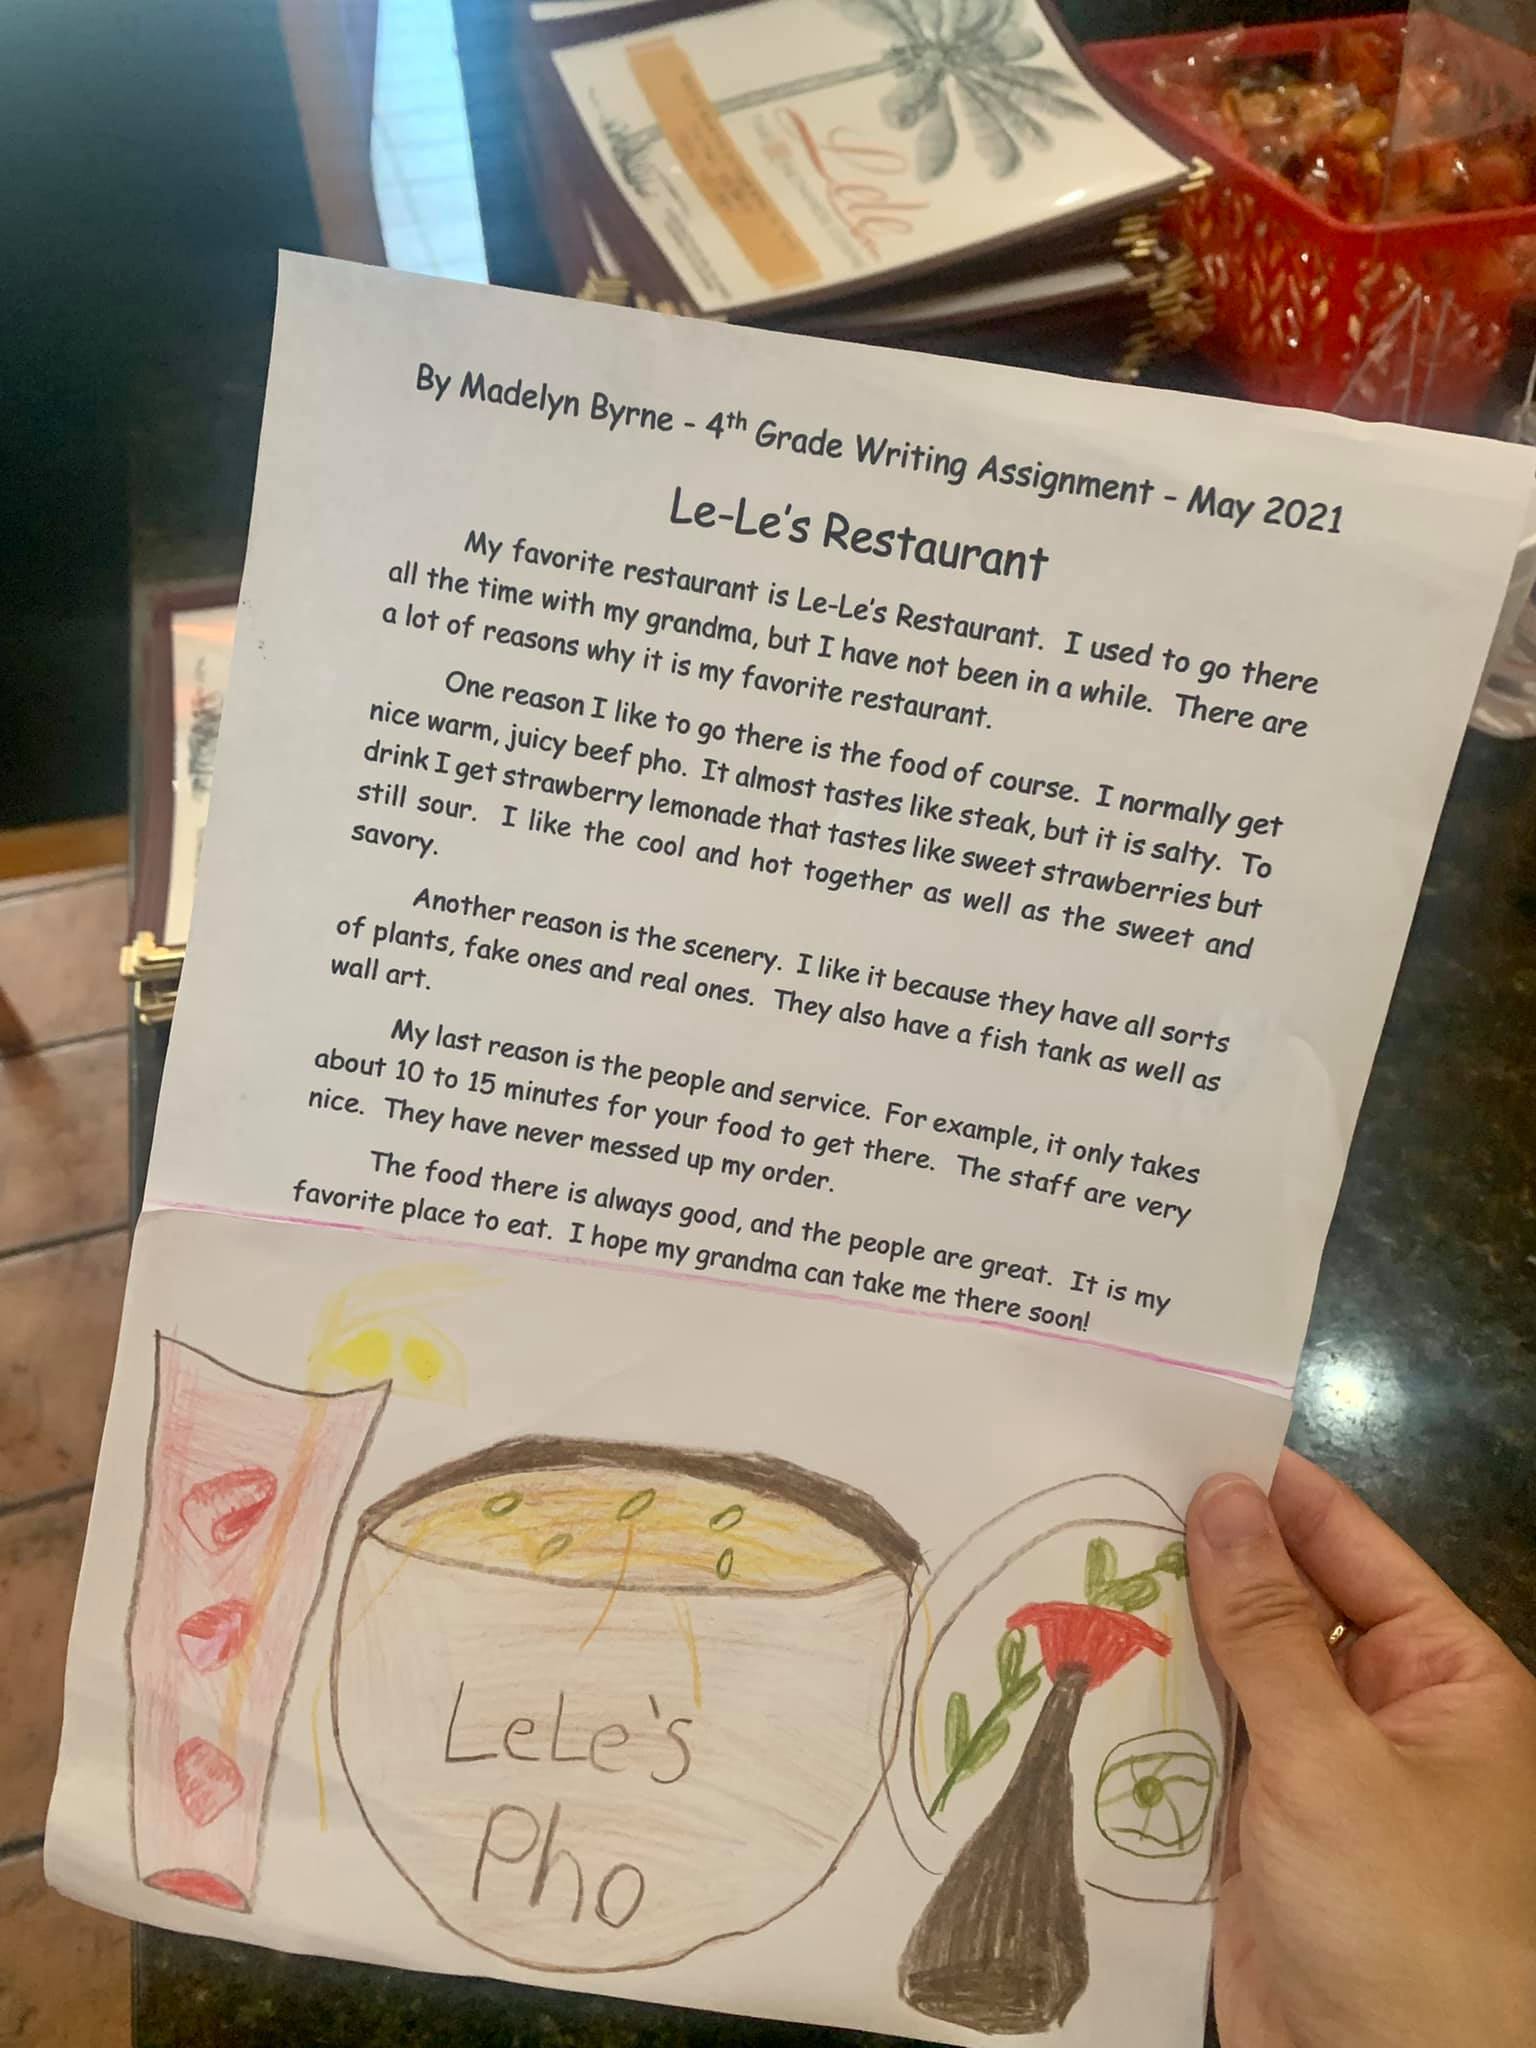 Lele
By Madelyn Byrne - 4th Grade Writing Assignment - May 2021
Le-Le's Restaurant
My favorite restaurant is Le-Le's Restaurant. I used to go there
all the time with my grandma, but I have not been in a while. There are
a lot of reasons why it is my favorite restaurant.
One reason I like to go there is the food of course. I normally get
nice warm, juicy beef pho. It almost tastes like steak, but it is salty. To
drink I get strawberry lemonade that tastes like sweet strawberries but
still sour. I like the cool and hot together as well as the sweet and
savory.
Another reason is the scenery. I like it because they have all sorts
of plants, fake ones and real ones. They also have a fish tank as well as
wall art.
My last reason is the people and service. For example, it only takes
about 10 to 15 minutes for your food to get there. The staff are very
nice. They have never messed up my order.
The food there is always good, and the people are great. It is my
favorite place to eat. I hope my grandma can take me there soon!
LeLe's
Pho